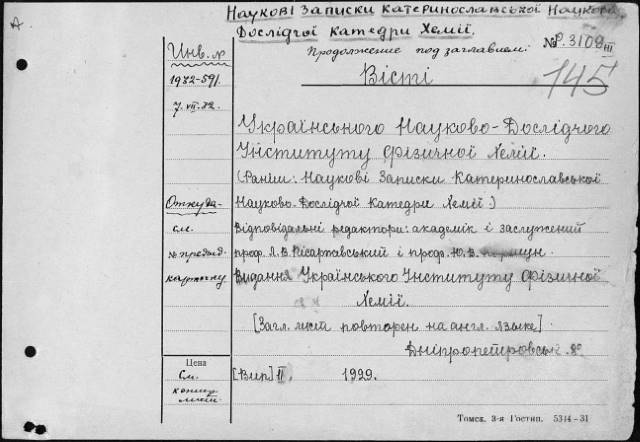 Наукові Записки Катеринославської Науково-
Дослідчої Катедри Хемії.
A
Инв. №
Продолжение под заглавием:
№ Р.3108 III
1932-591
Вісті
145
7.VII.32.
Українського Науково-Дослідчого
Інституту Фізичної Хемії.
(Раніш: Наукові Записки Катеринославської
Откуда
Науково-Дослідчої Катедри Хемії)
см.
Відповідальні редактори: академік і заслужений
№ предыд.
проф. Л.В. Пісаржевський і проф. Ю.В.
карточку
Видання Українського Інституту Фізичної
Хемії.
[Загл. лист повторен на англ. языке]
Дніпропетровськ
Цена
См.
[Вип] II, 1929.
Томск. 3-я Гостип. 5314-31